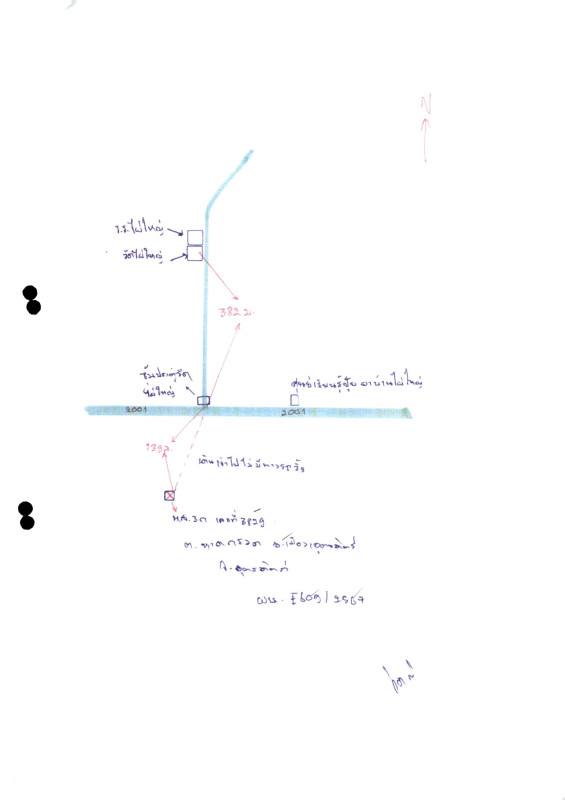 N
ร.ร.ไผ่ใหญ่
วัดไผ่ใหญ่
382 ม.
ซุ้มประตูวัด
ไผ่ใหญ่
ศูนย์เรียนรู้ปุ๋ย บ้านไผ่ใหญ่
2001
2001
ม.
เดินเข้าไปไม่มีทางรถวิ่ง
น.ส.3ก เลขที่ 3829
ต.หาดกรวด อ.เมืองอุตรดิตถ์
จ.อุตรดิตถ์
ผบ. E609/2567